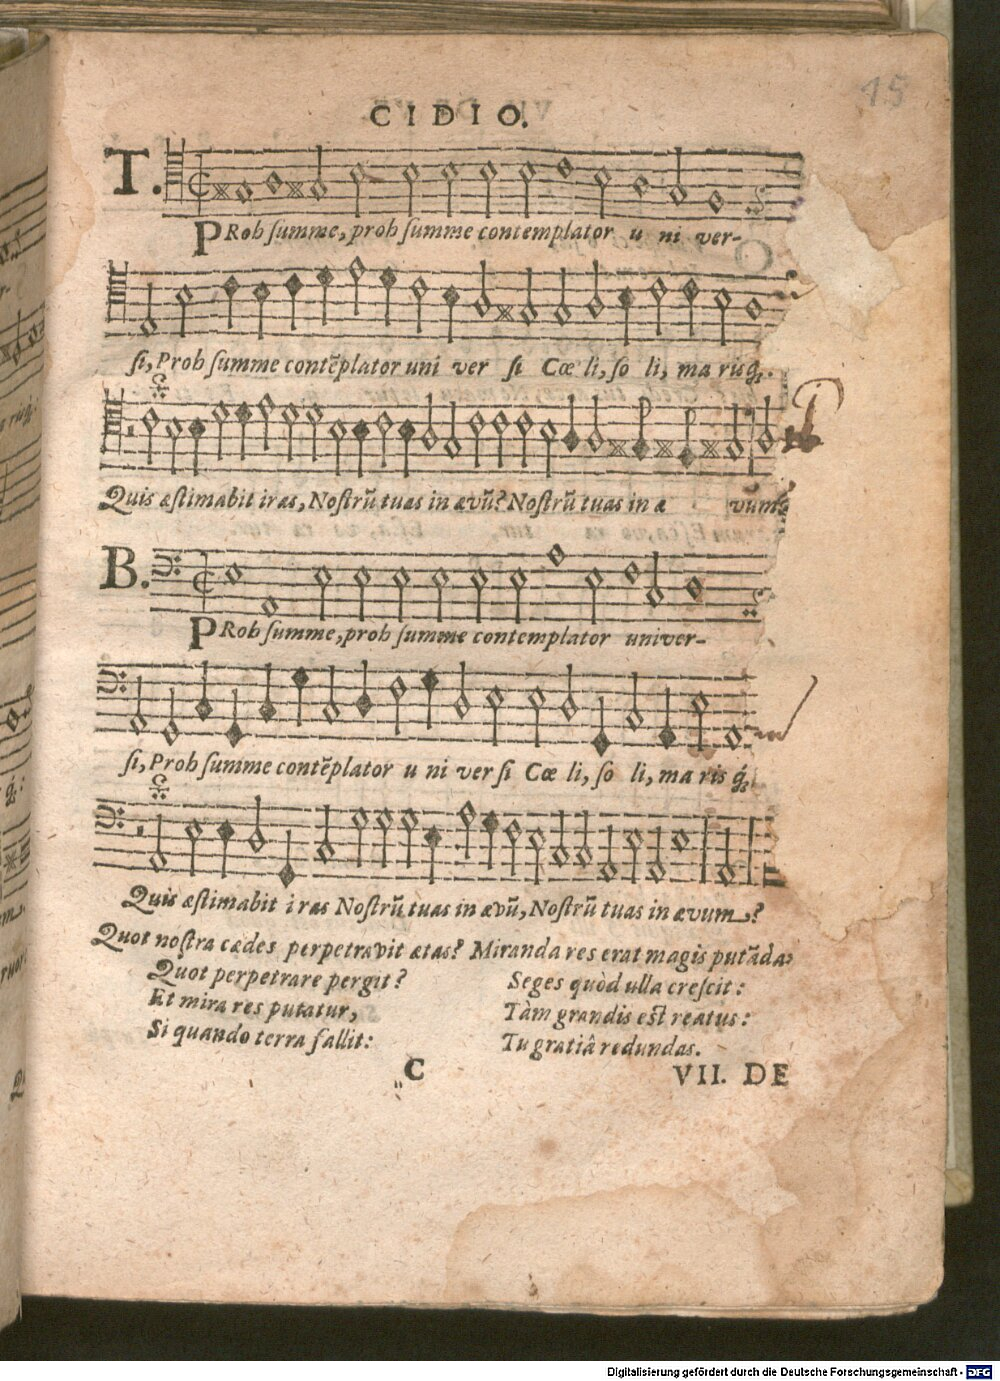 15
CIDIO.
T.
PRoh ſumme, proh ſumme contemplator u ni ver-
ſi, Proh ſumme contẽplator uni ver ſi Cœ li, ſo li, ma risq́;.
Quis æſtimabit iras, Noſtrũ tuas in ævũ? Noſtrũ tuas in æ vum?
B.
PRoh ſumme, proh ſumme contemplator univer-
ſi, Proh ſumme contẽplator u ni ver ſi Cœ li, ſo li, ma ris q́;
Quis æſtimabit iras Noſtrũ tuas in ævũ, Noſtrũ tuas in ævum?
Quot noſtra cædes perpetravit ætas?
Quot perpetrare pergit?
Et mira res putatur,
Si quando terra fallit:
Miranda res erat magis putãda:
Seges quòd ulla creſcit:
Tàm grandis eſt reatus:
Tu gratiâ redundas.
C
VII. DE
Digitalisierung gefördert durch die Deutsche Forschungsgemeinschaft - DFG